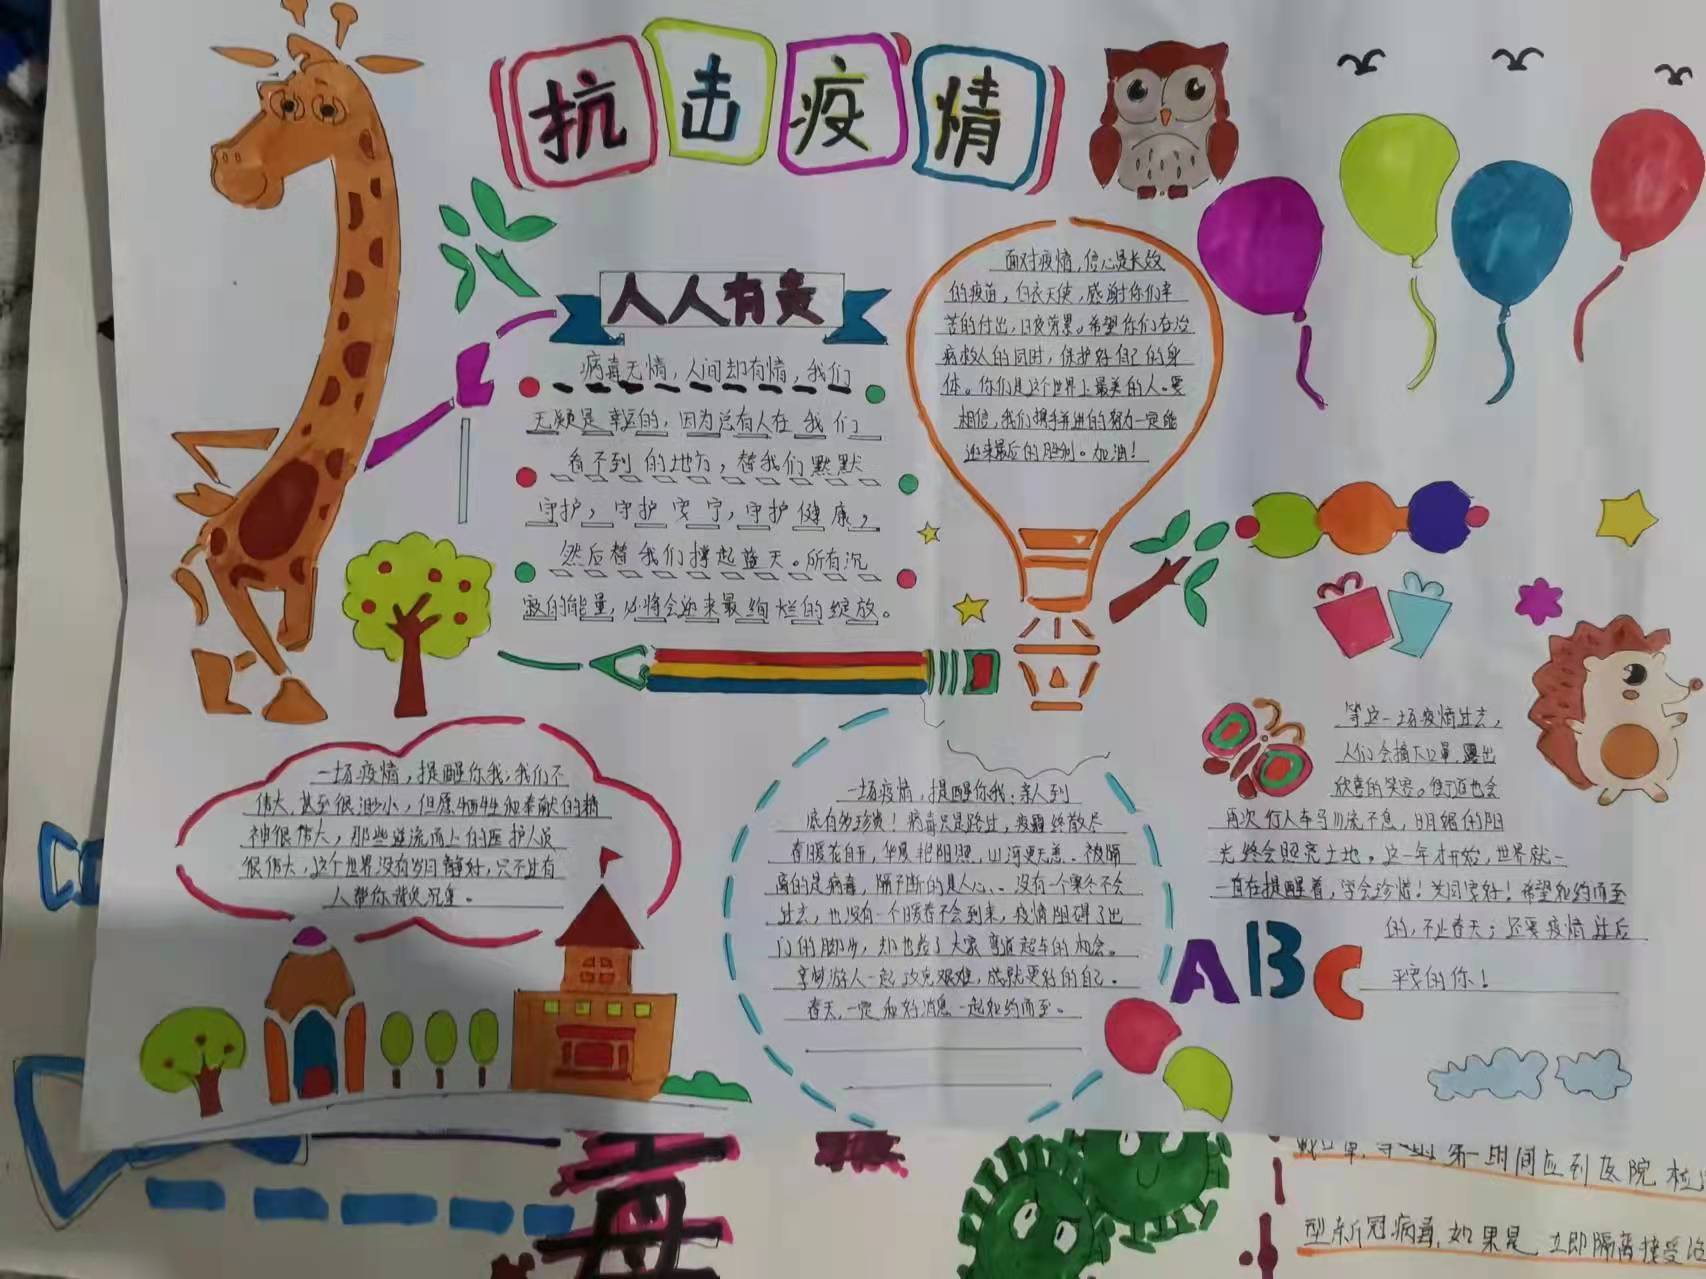 抗击疫情
人人有责
病毒无情，人间却有情，我们
无疑是幸运的，因为总有人在我们
看不到的地方，替我们默默
守护，守护安宁，守护健康，
然后替我们撑起蓝天。所有沉
寂的能量，必将会迎来最绚烂的绽放。
面对疫情，信心是长效
的疫苗，白衣天使，感谢你们辛
苦的付出，日夜劳累。希望你们在治
病救人的同时，保护好自己的身
体。你们是这个世界上最美的人。要
相信，我们携手并进的努力一定能
迎来最后的胜利。加油！
一场疫情，提醒你我：我们不
伟大，甚至很渺小，但愿牺牲和奉献的精
神很伟大，那些逆流而上的医护人员
很伟大，这个世界没有岁月静好，只不过有
人帮你背负沉重。
一场疫情，提醒你我：亲人到
底有多珍贵！病毒只是路过，疫霾终散尽
春暖花自开，华夏艳阳照，山河更无恙。被隔
离的是病毒，隔不断的是人心、。没有一个寒冬不会
过去，也没有一个暖春不会到来，疫情阻碍了出
门的脚步，却也给了大家弯道超车的机会。
享梦游人一起攻克艰难，成就更好的自己。
春天，一定和好消息一起如约而至。
等这一场疫情过去，
人们会摘下口罩，露出
欣喜的笑容。街道也会
再次行人车马川流不息，明媚的阳
光终会照亮土地。这一年才开始，世界就一
直在提醒着，学会珍惜！美同安好！希望如约而至
的，不止春天；还要疫情过后
平安的你！
ABC
毒
第一时间应到医院检
型新冠病毒，如果是，立即隔离接受治